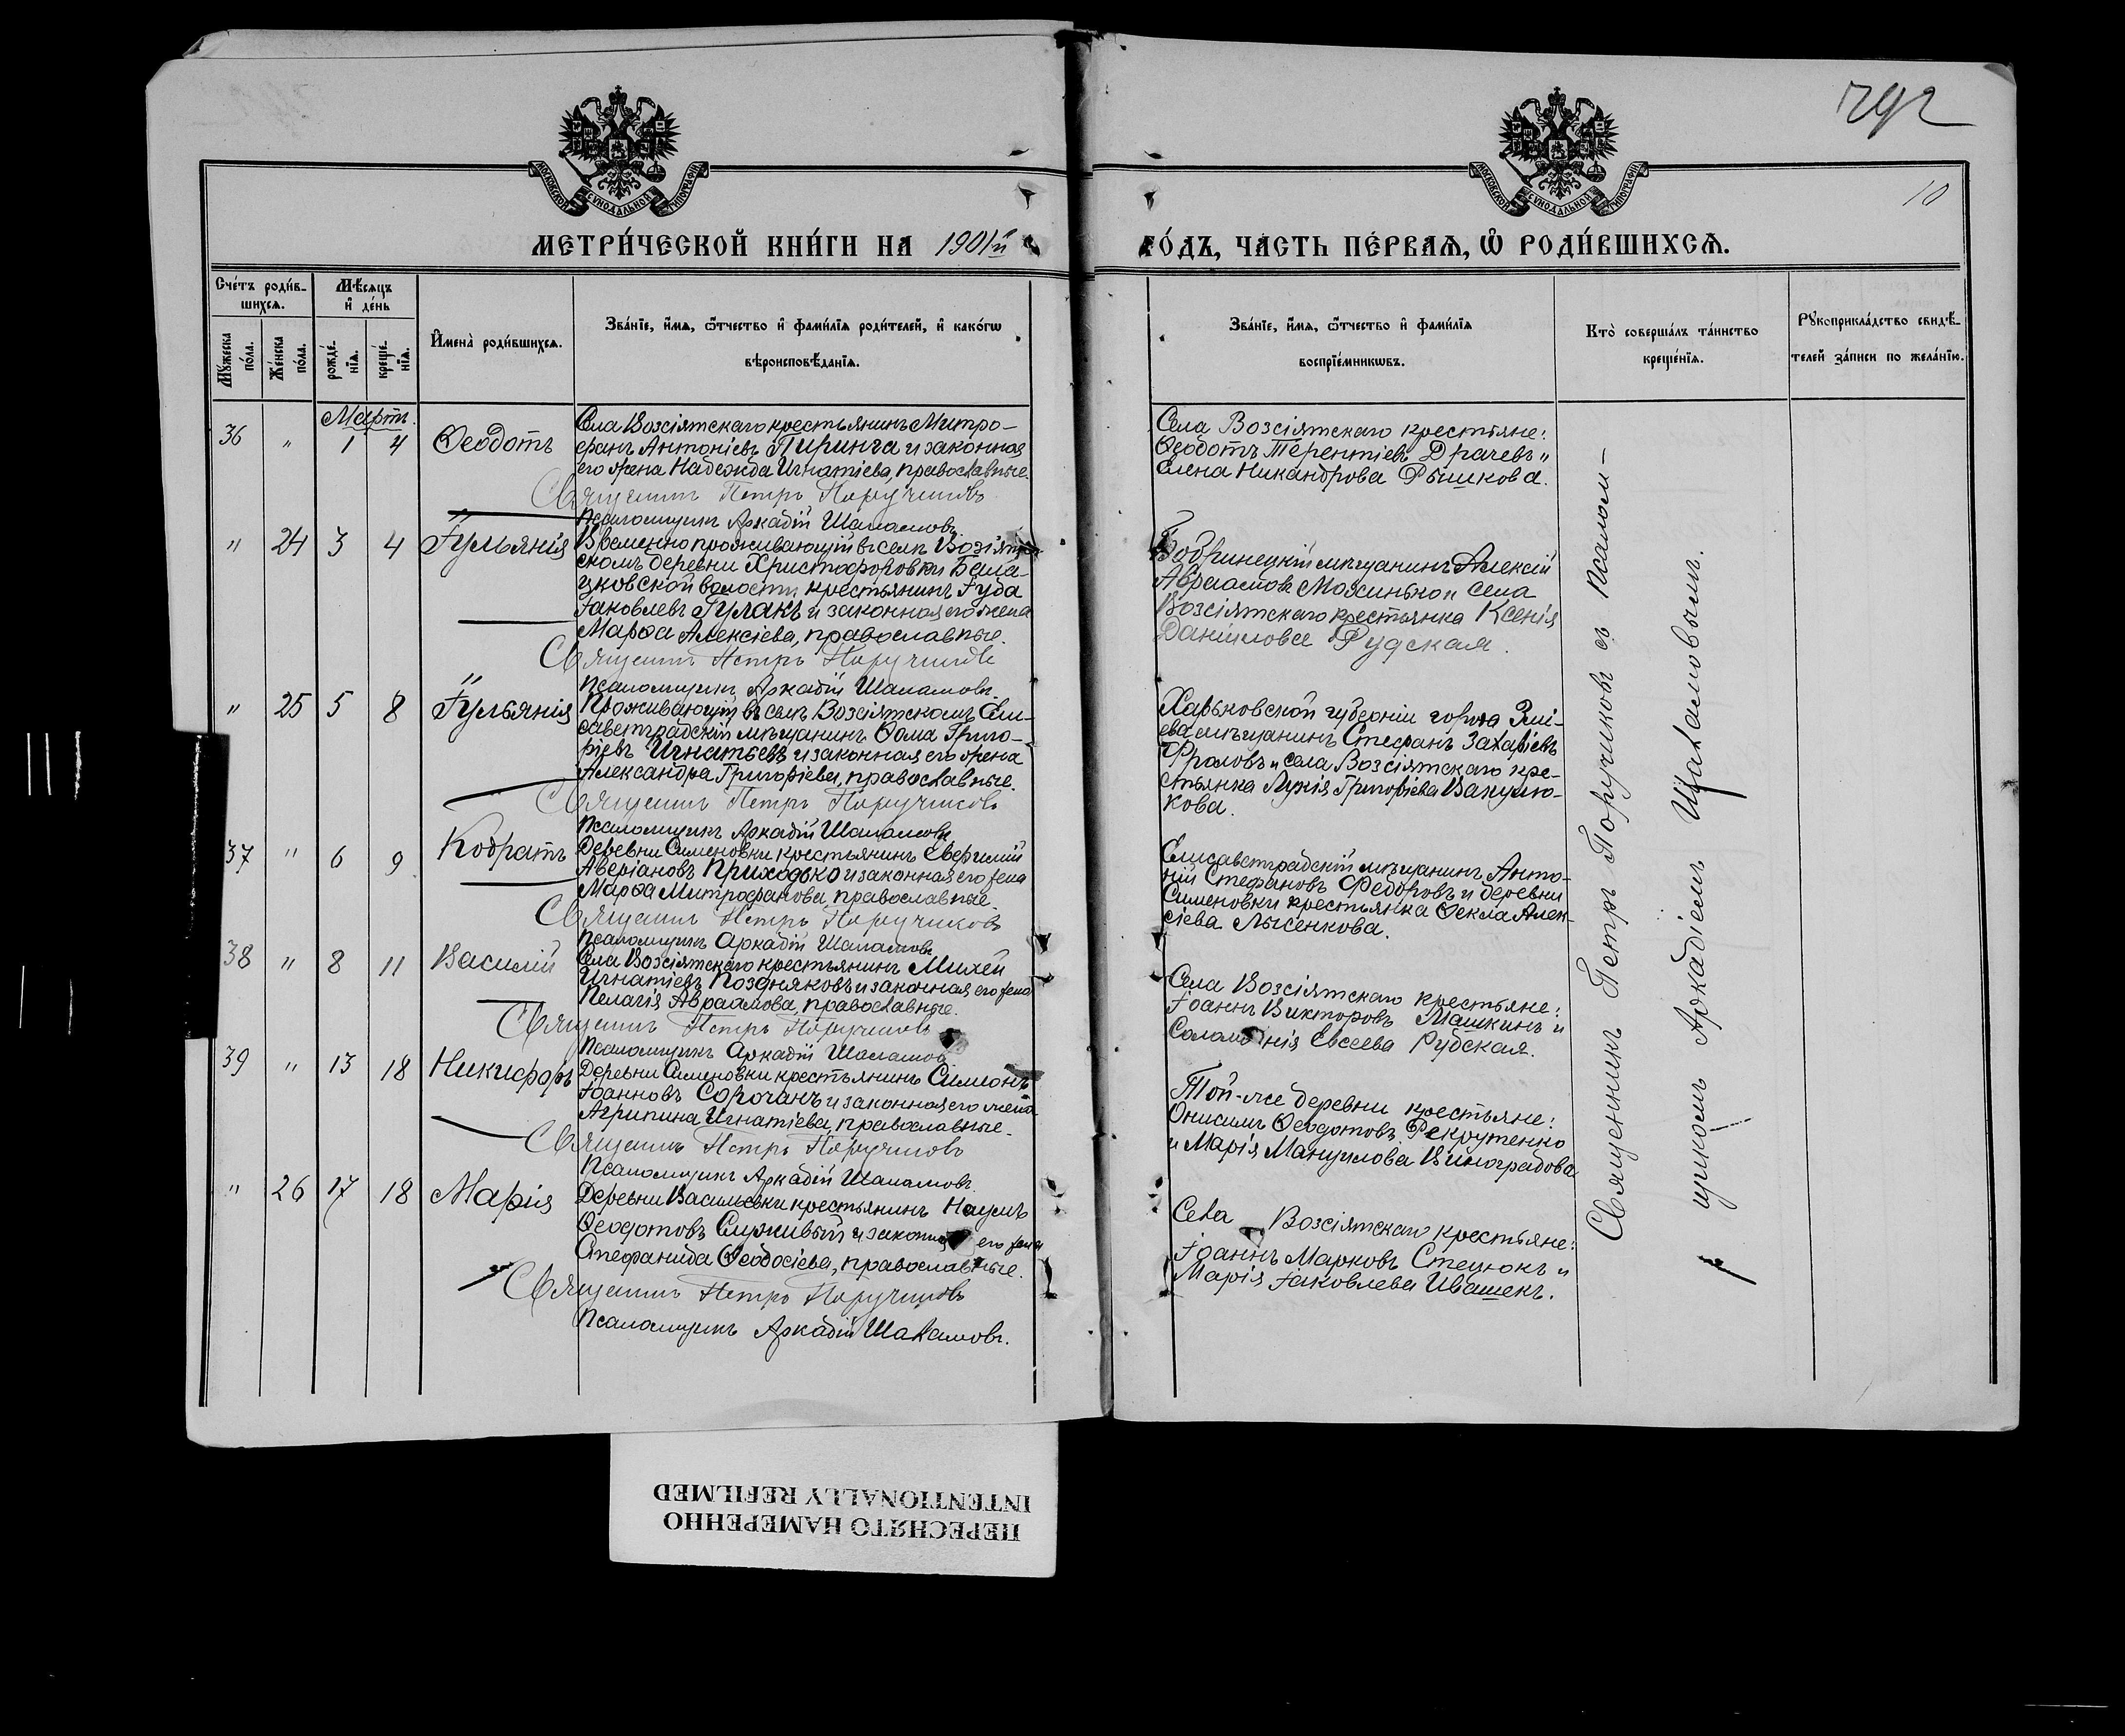 792
10
МОСКОВСКОЙ СѴНОДАЛЬНОЙ ТИПОГРАФІИ
МОСКОВСКОЙ СѴНОДАЛЬНОЙ ТИПОГРАФІИ
МЕТРИ́ЧЕСКОЙ КНИ́ГИ НА 1901й
ГО́ДЪ, ЧА́СТЬ ПЕ́РВАЯ, Ѽ РОДИ́ВШИХСѦ.
Счётъ роди́в-
шихся.
Мѣ́сяцъ
и҆ де́нь
Му́жеска
по́ла.
Же́нска
по́ла.
рожде́-
нія.
креще́-
нія.
И҆мена̀ роди́вшихся.
Зва́ніе, и҆́мя, ѻ҆́тчество и҆ фами́лія роди́телей, и҆ како́гѡ
вѣроисповѣ́данія.
Зва́ніе, и҆́мя, ѻ҆́тчество и҆ фами́лія
воспріе́мникѡвъ.
Кто̀ соверша́лъ та́инство
креще́нія.
Рукоприкла́дство свидѣ́-
телей за́писи по жела́нію.
Мартъ.
36 " 1 4 Ѳеодотъ
Села Возсіятскаго крестьянинъ Митро-
фанъ Антоніевъ Пиринга и законная
его жена Надежда Игнатіева, православные.
Священникъ Петръ Поручиковъ
Псаломщикъ Аркадій Шаламовъ
Села Возсіятскаго крестьяне:
Ѳеодотъ Терентіевъ Драчевъ и
Елена Никандрова Рышкова.
" 24 3 4 Іульянія
Временно проживающій въ селѣ Возсіят-
скомъ деревни Христофоровки
волости, крестьянинъ Іуда
Іаковлевъ Гулакъ и законная его жена
Марѳа Алексіева, православные.
Священникъ Петръ Поручиковъ
Псаломщикъ Аркадій Шаламовъ.
Бобринецкій мѣщанинъ Алексій
Авраамовъ и села
Возсіятскаго крестьянка Ксенія
Даніилова Рудская.
" 25 5 8 Іульянія
Проживающій въ селѣ Возсіятскомъ Ели-
саветградскій мѣщанинъ Ѳома Григо-
ріевъ Игнатьевъ и законная его жена
Александра Григоріева, православные.
Священникъ Петръ Поручиковъ
Псаломщикъ Аркадій Шаламовъ
Харьковской губерніи города Змі-
ева мѣщанинъ Стефанъ Захаріевъ
Фроловъ и села Возсіятскаго кре-
стьянка Лукія Григоріева Вакулю-
кова.
37 " 6 9 Кодратъ
Деревни Сименовки крестьянинъ Евфимій
Аверіановъ Приходько и законная его жена
Марѳа Митрофанова, православные.
Священникъ Петръ Поручиковъ
Псаломщикъ Аркадій Шаламовъ
Елисаветградскій мѣщанинъ Анто-
ній Стефановъ Федоровъ и деревни
Сименовки крестьянка Ѳекла Алек-
сіева Лысенкова.
38 " 8 11 Василій
Села Возсіятскаго крестьянинъ Михей
Игнатіевъ Поздняковъ и законная его жена
Пелагія Авраамова, православные.
Священникъ Петръ Поручиковъ
Псаломщикъ Аркадій Шаламовъ
Села Возсіятскаго крестьяне:
Іоаннъ Викторовъ Машкинъ и
Соломонія Евсеева Рудская.
39 " 13 18 Никифоръ
Деревни Сименовки крестьянинъ Симеонъ
Іоанновъ Сорочанъ и законная его жена
Агрипина Игнатіева, православные.
Священникъ Петръ Поручиковъ
Псаломщикъ Аркадій Шаламовъ.
Той-же деревни крестьяне:
Онисимъ Ѳеодотовъ Рекрутенко
и Марія Мануилова Виноградова
" 26 17 18 Марія
Деревни Васильевки крестьянинъ Наумъ
Ѳеодотовъ Служивый и законная его жена
Стефанида Ѳеодосіева, православные.
Священникъ Петръ Поручиковъ
Псаломщикъ Аркадій Шаламовъ.
Села Возсіятскаго крестьяне:
Іоаннъ Марковъ Стецюкъ и
Марія Іаковлева Ивашекъ.
Священникъ Петръ Поручиковъ съ Псалом-
щикомъ Аркадіемъ Шаламовымъ.
ПЕРЕСНЯТО НАМЕРЕННО
INTENTIONALLY REFILMED